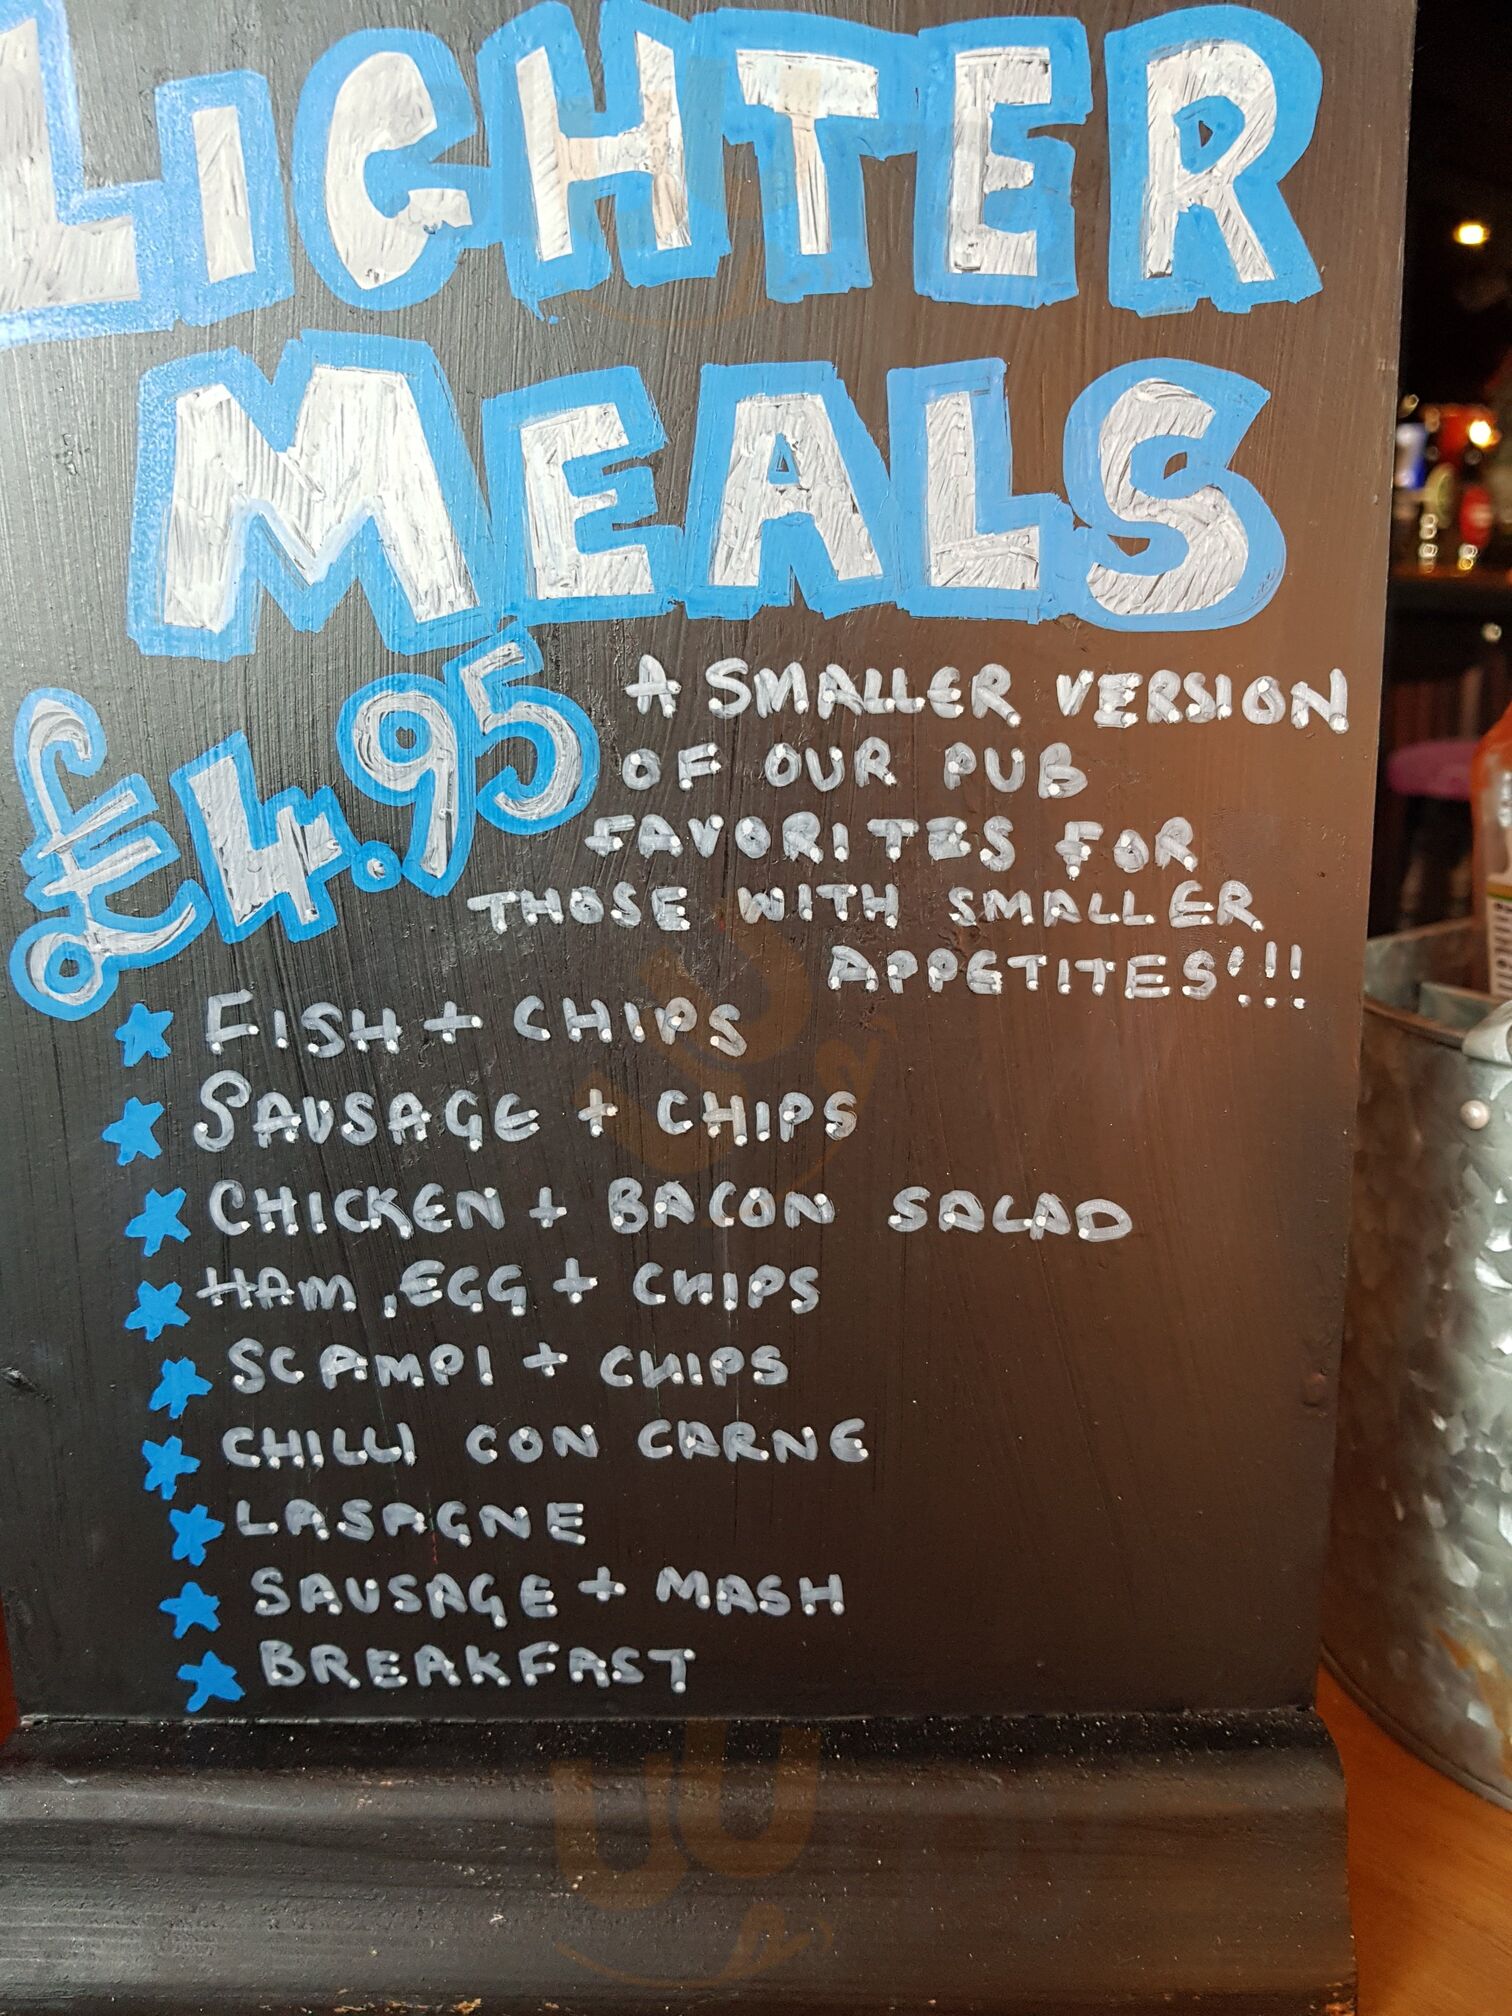 LiGHTER
MEALS
£4.95
A SMALLER VERSION
OF OUR PUB
FAVORITES FOR
THOSE WITH SMALLER
APPETITES!!!
FISH + CHIPS
SAUSAGE + CHIPS
CHICKEN + BACON SALAD
HAM, EGG + CHIPS
SCAMPI + CHIPS
CHILLI CON CARNE
LASAGNE
SAUSAGE + MASH
BREAKFAST